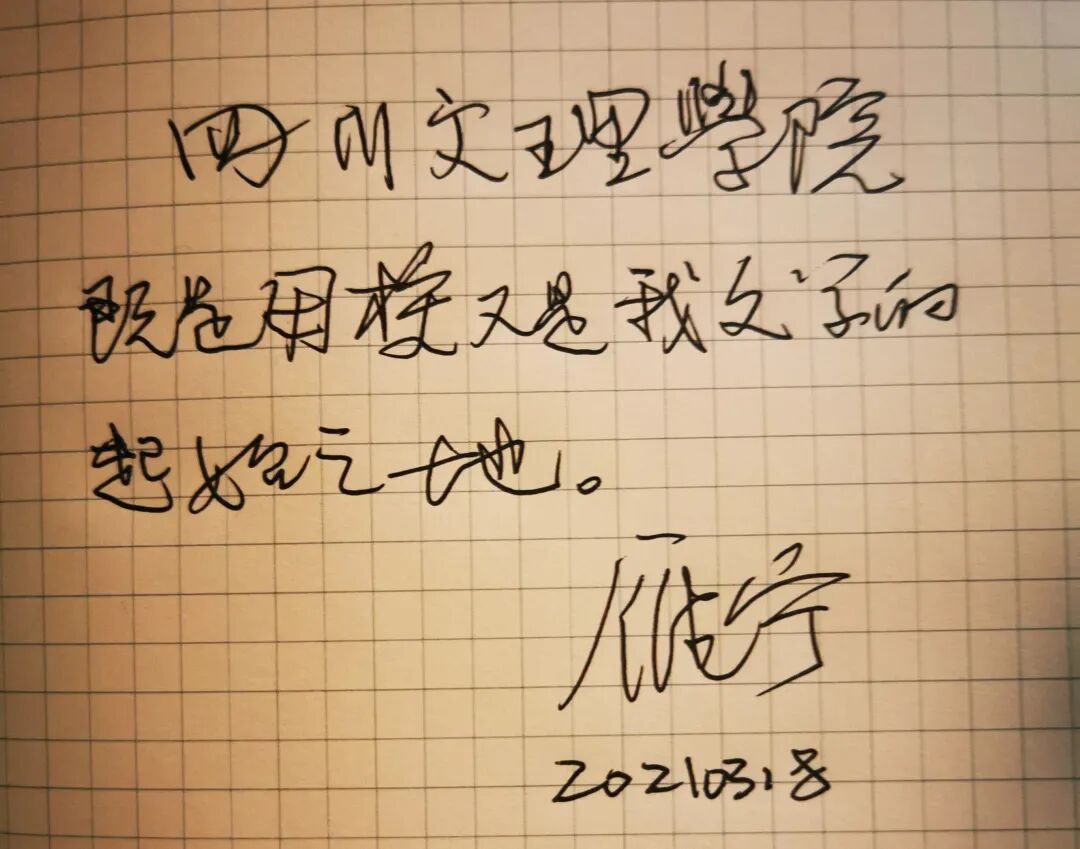 四川文理學院
既是母校又是我文字的
起始之地。
雁宁
20210318